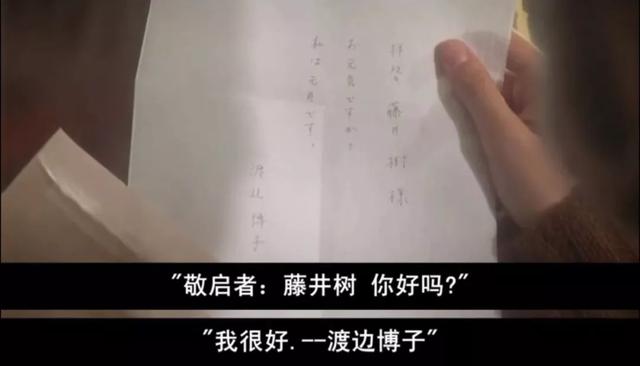 拝啓 藤井 樹 様
お元気ですか?
私は元気です。
渡辺 博子
"敬启者：藤井树 你好吗?"
"我很好.--渡边博子"